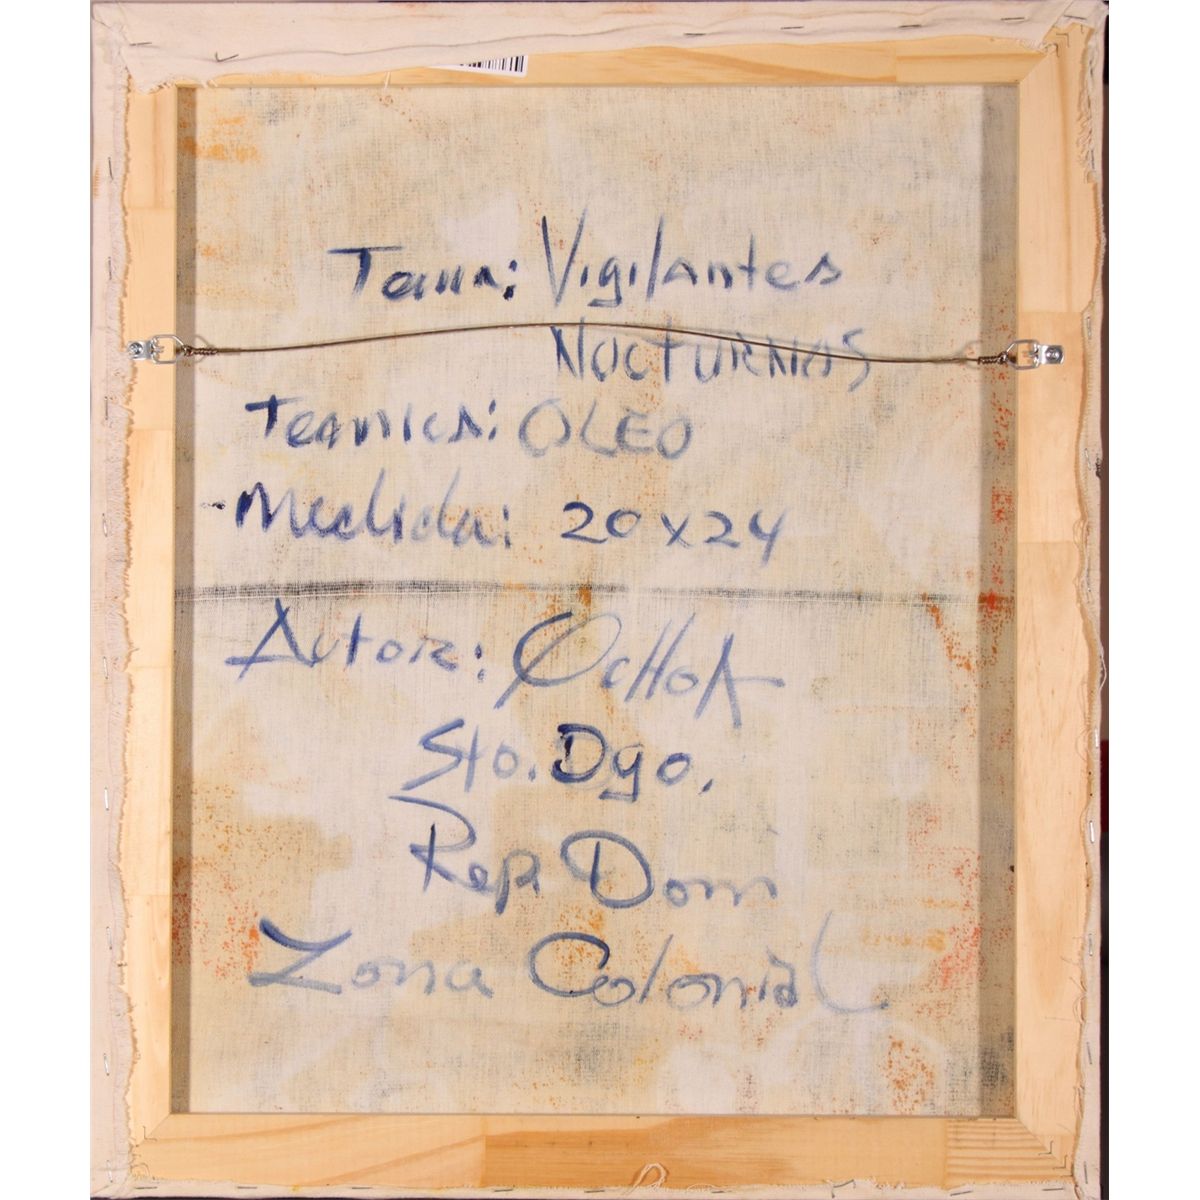 Tema: Vigilantes
NOCTURNOS
Tecnica: OLEO
Medida: 20x24
Autor: OcHoA
Sto. Dgo.
Rep Dom
Zona Colonial